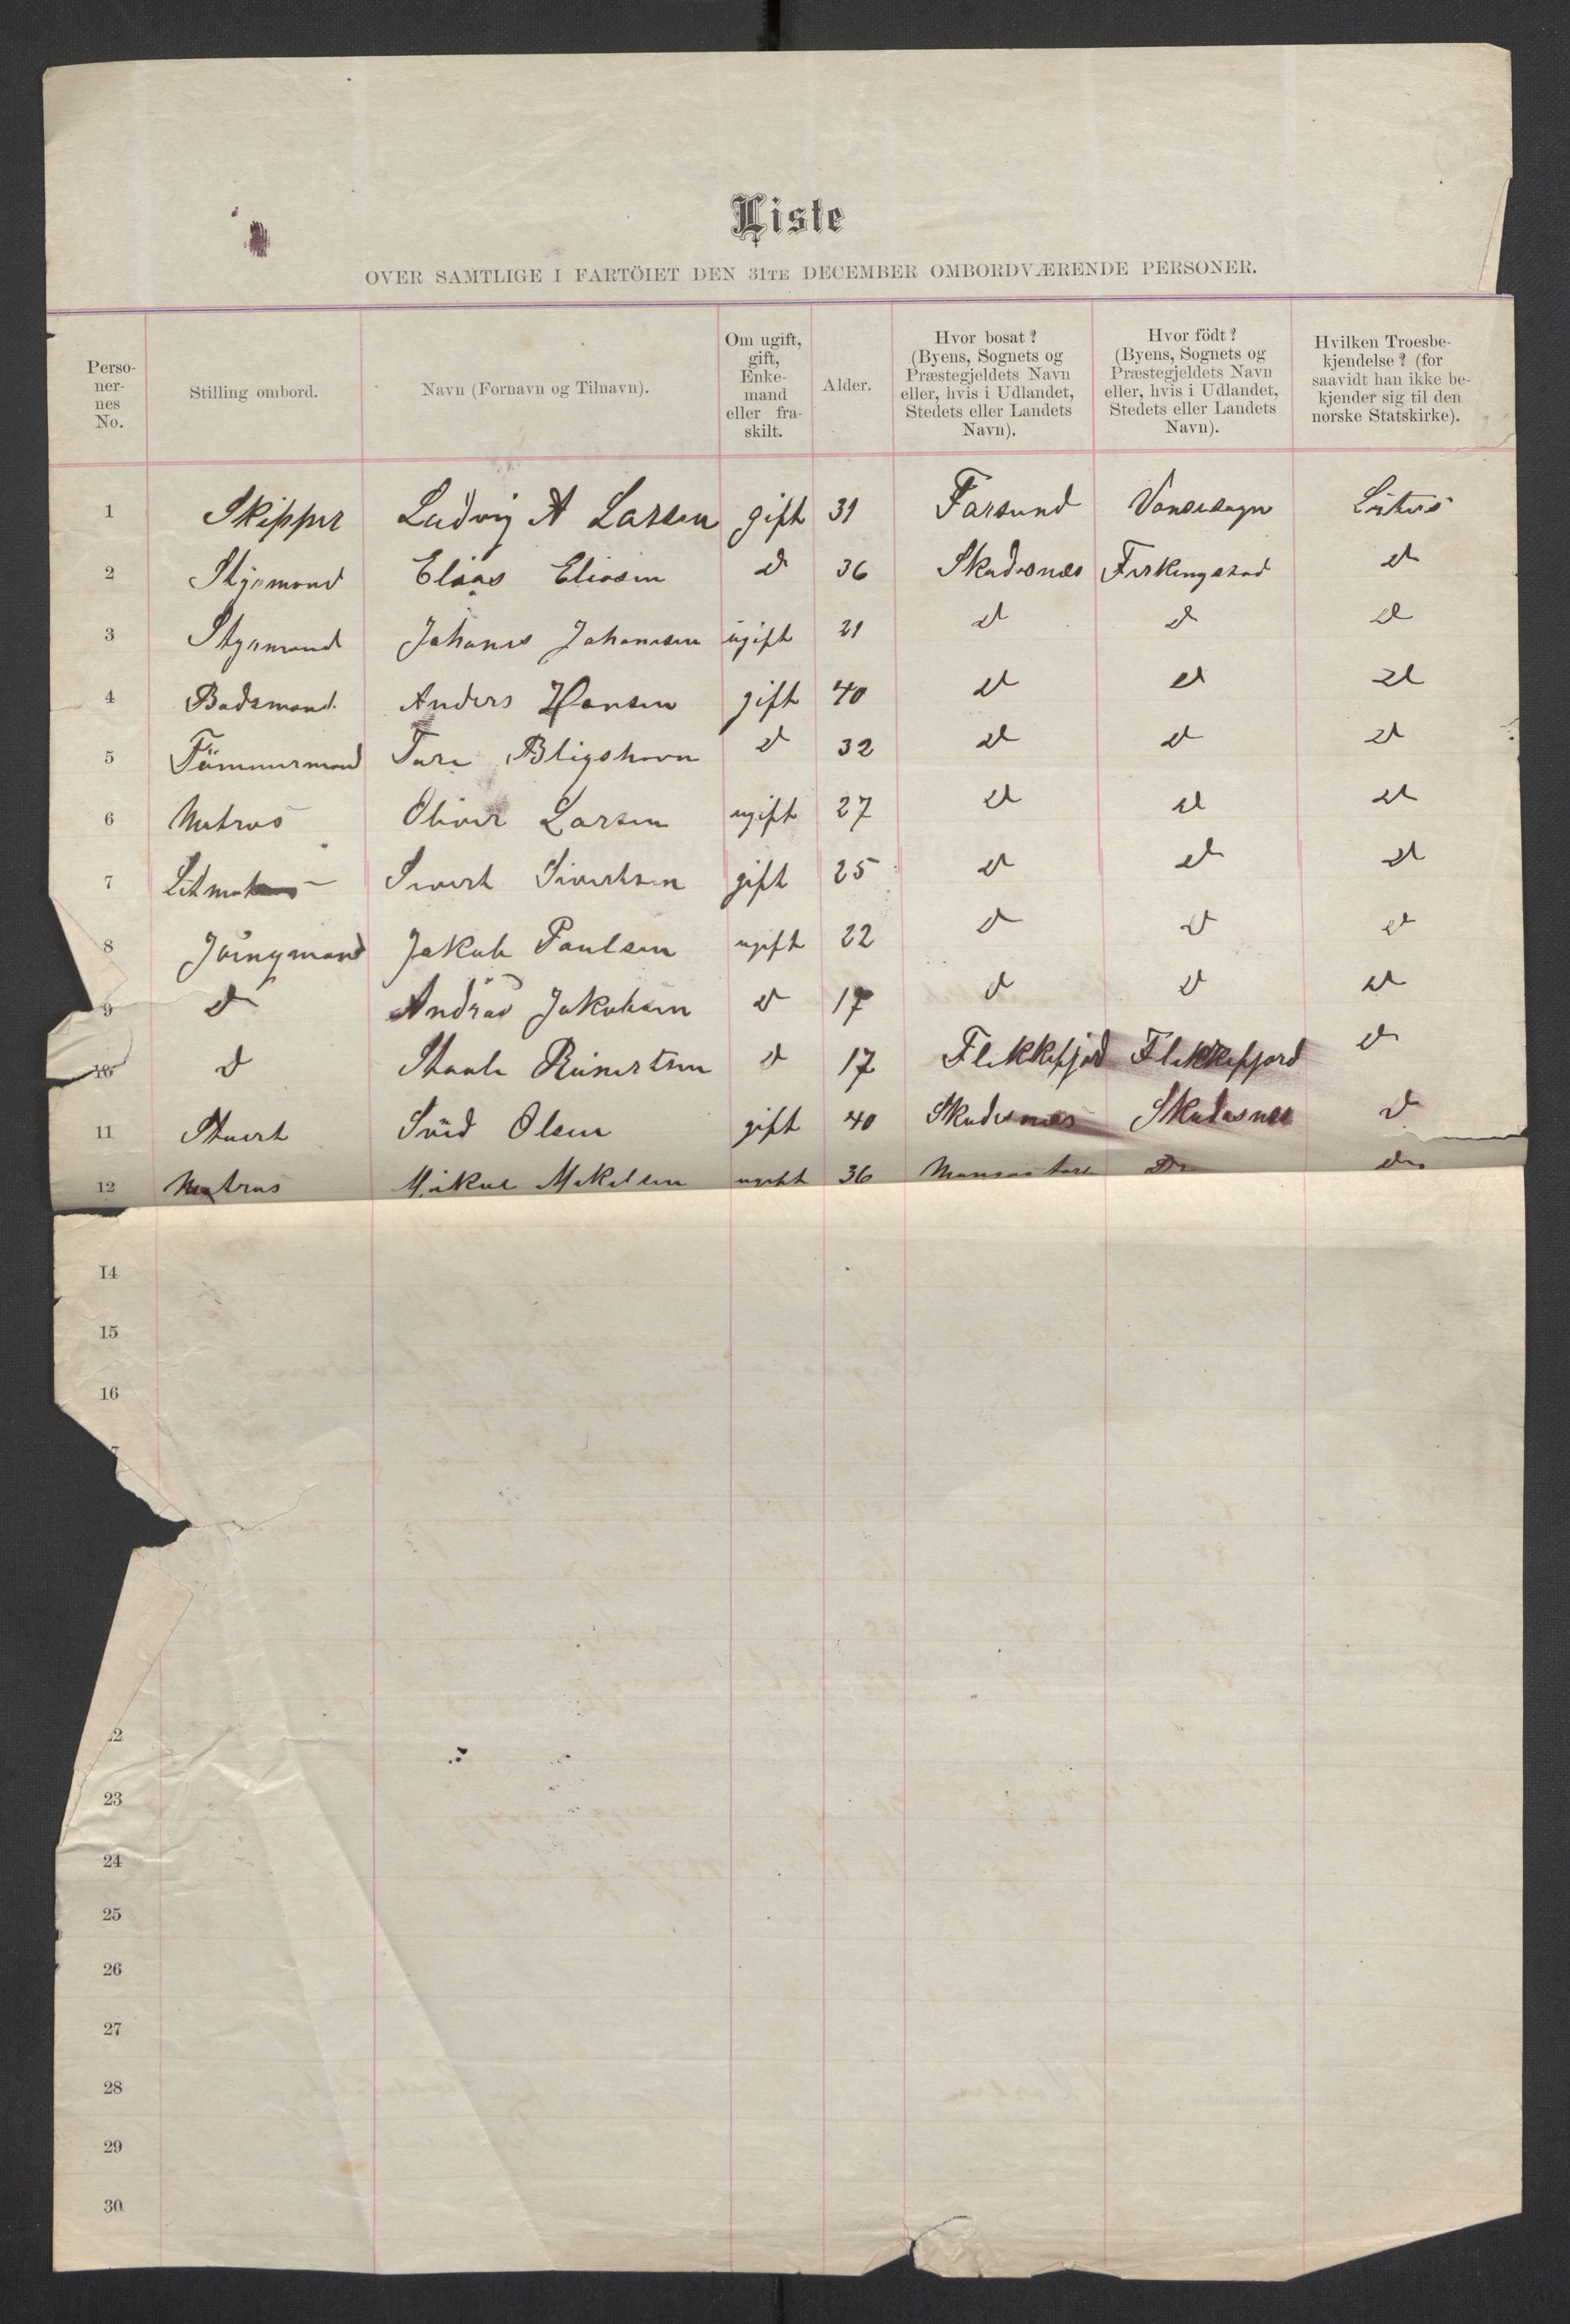 Liste
OVER SAMTLIGE I FARTÖIET DEN 31TE DECEMBER OMBORDVÆRENDE PERSONER.
Perso-
ner-
nes
No.
Stilling ombord.
Navn (Fornavn og Tilnavn).
Om ugift,
gift,
Enke-
mand
eller fra-
skilt.
Alder.
Hvor bosat?
(Byens, Sognets og
Præstegjeldets Navn
eller, hvis i Udlandet,
Stedets eller Landets
Navn).
Hvor födt?
(Byens, Sognets og
Præstegjeldets Navn
eller, hvis i Udlandet,
Stedets eller Landets
Navn).
Hvilken Troesbe-
kjendelse? (for
saavidt han ikke be-
kjender sig til den
norske Statskirke).
1 Skipper Ludvig A Larsen gift 31 Farsund Vansesogn
2 Styrmand Elias Eliasen d 36 Skudesnæs Ferkingstad d
3 Styrmand Johanes Johanesen ugift 21 d d d
4 Badsmand Anders Hansen gift 40 d d d
5 Tömmermand Ture d 32 d d d
6 Matros Oliver Larsen ugift 27 d d d
7 Sivert Sivertsen gift 25 d d d
8 Jungmand Jakob Paulsen ugift 22 d d d
9 d Andreas Jakobsen d 17 d d d
10 d Reinertsen d 17 Flekkefjord Flekkefjord d
11 Stuert Svend Olsen gift 40 Skudesnes Skudesnes d
12 Matros Mikal Mikelsen ugift 36 Do do
14
15
16
7
22
23
24
25
26
27
28
29
30